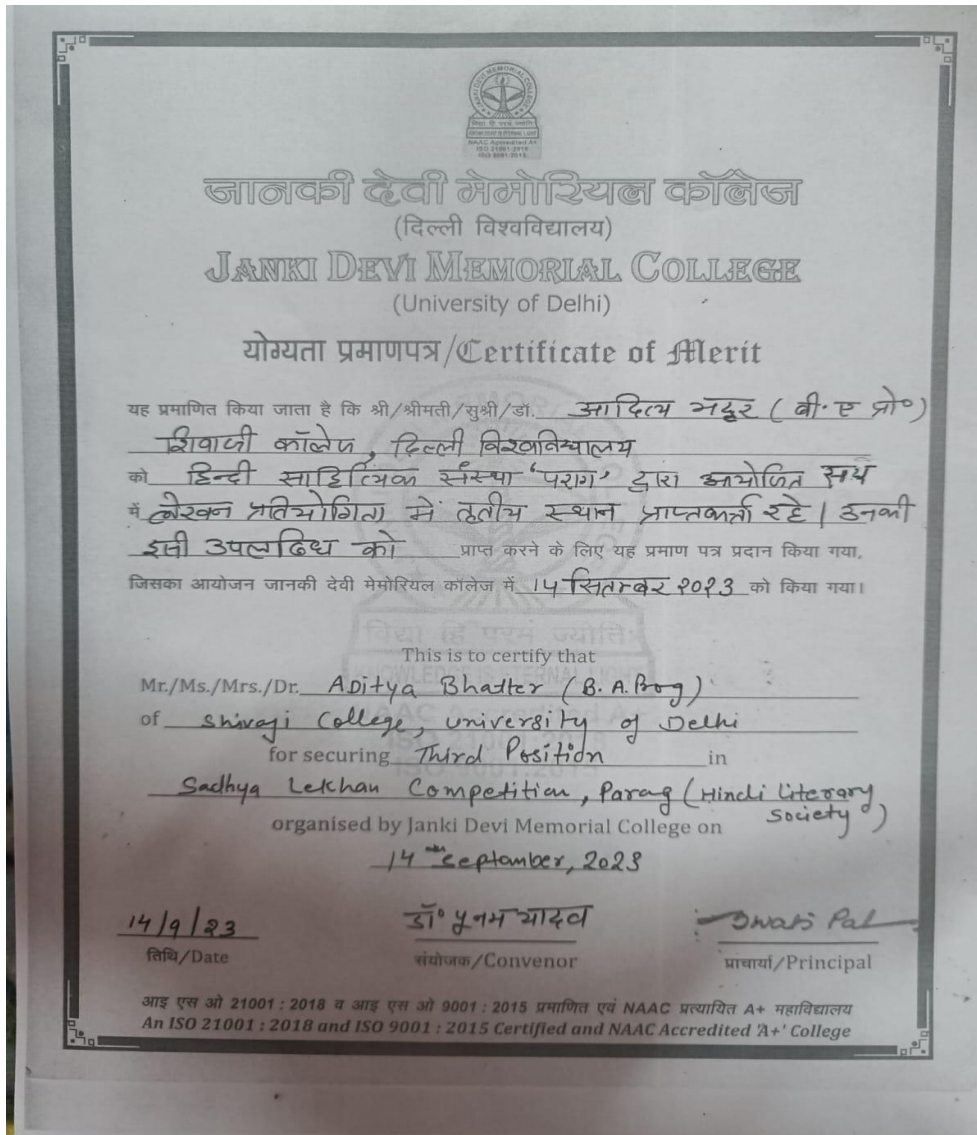 JANKI DEVI MEMORIAL COLLEGE
विद्या हि परमं ज्योतिः
KNOWLEDGE IS ETERNAL LIGHT
NAAC Accredited A+
ISO 21001:2018
ISO 9001:2015
जानकी देवी मेमोरियल कॉलेज
(दिल्ली विश्वविद्यालय)
JANKI DEVI MEMORIAL COLLEGE
(University of Delhi)
योग्यता प्रमाणपत्र/Certificate of Merit
यह प्रमाणित किया जाता है कि श्री/श्रीमती/सुश्री/डॉ. आदित्य भट्टर (बी.ए प्रो०)
शिवाजी कॉलेज, दिल्ली विश्वविद्यालय
को हिन्दी साहित्यिक संस्था 'पराग' द्वारा आयोजित
में लेखन प्रतियोगिता में तृतीय स्थान प्राप्तकर्त्ता रहे। उनकी
इसी उपलब्धि को प्राप्त करने के लिए यह प्रमाण पत्र प्रदान किया गया,
जिसका आयोजन जानकी देवी मेमोरियल कॉलेज में 14 सितम्बर २०२३ को किया गया।
विद्या हि परमं ज्योतिः
This is to certify that
Mr./Ms./Mrs./Dr. Aditya Bhatter (B.A. Prog)
of Shivaji College, University of Delhi
for securing Third Position in
Sadhya Lekhan Competition, Parag (Hindi Literary Society)
organised by Janki Devi Memorial College on
14th September, 2023
14/9/23 डॉ० पूनम यादव Swati Pal
तिथि/Date संयोजक/Convenor प्राचार्या/Principal
आइ एस ओ 21001 : 2018 व आइ एस ओ 9001 : 2015 प्रमाणित एवं NAAC प्रत्यायित A+ महाविद्यालय
An ISO 21001 : 2018 and ISO 9001 : 2015 Certified and NAAC Accredited 'A+' College